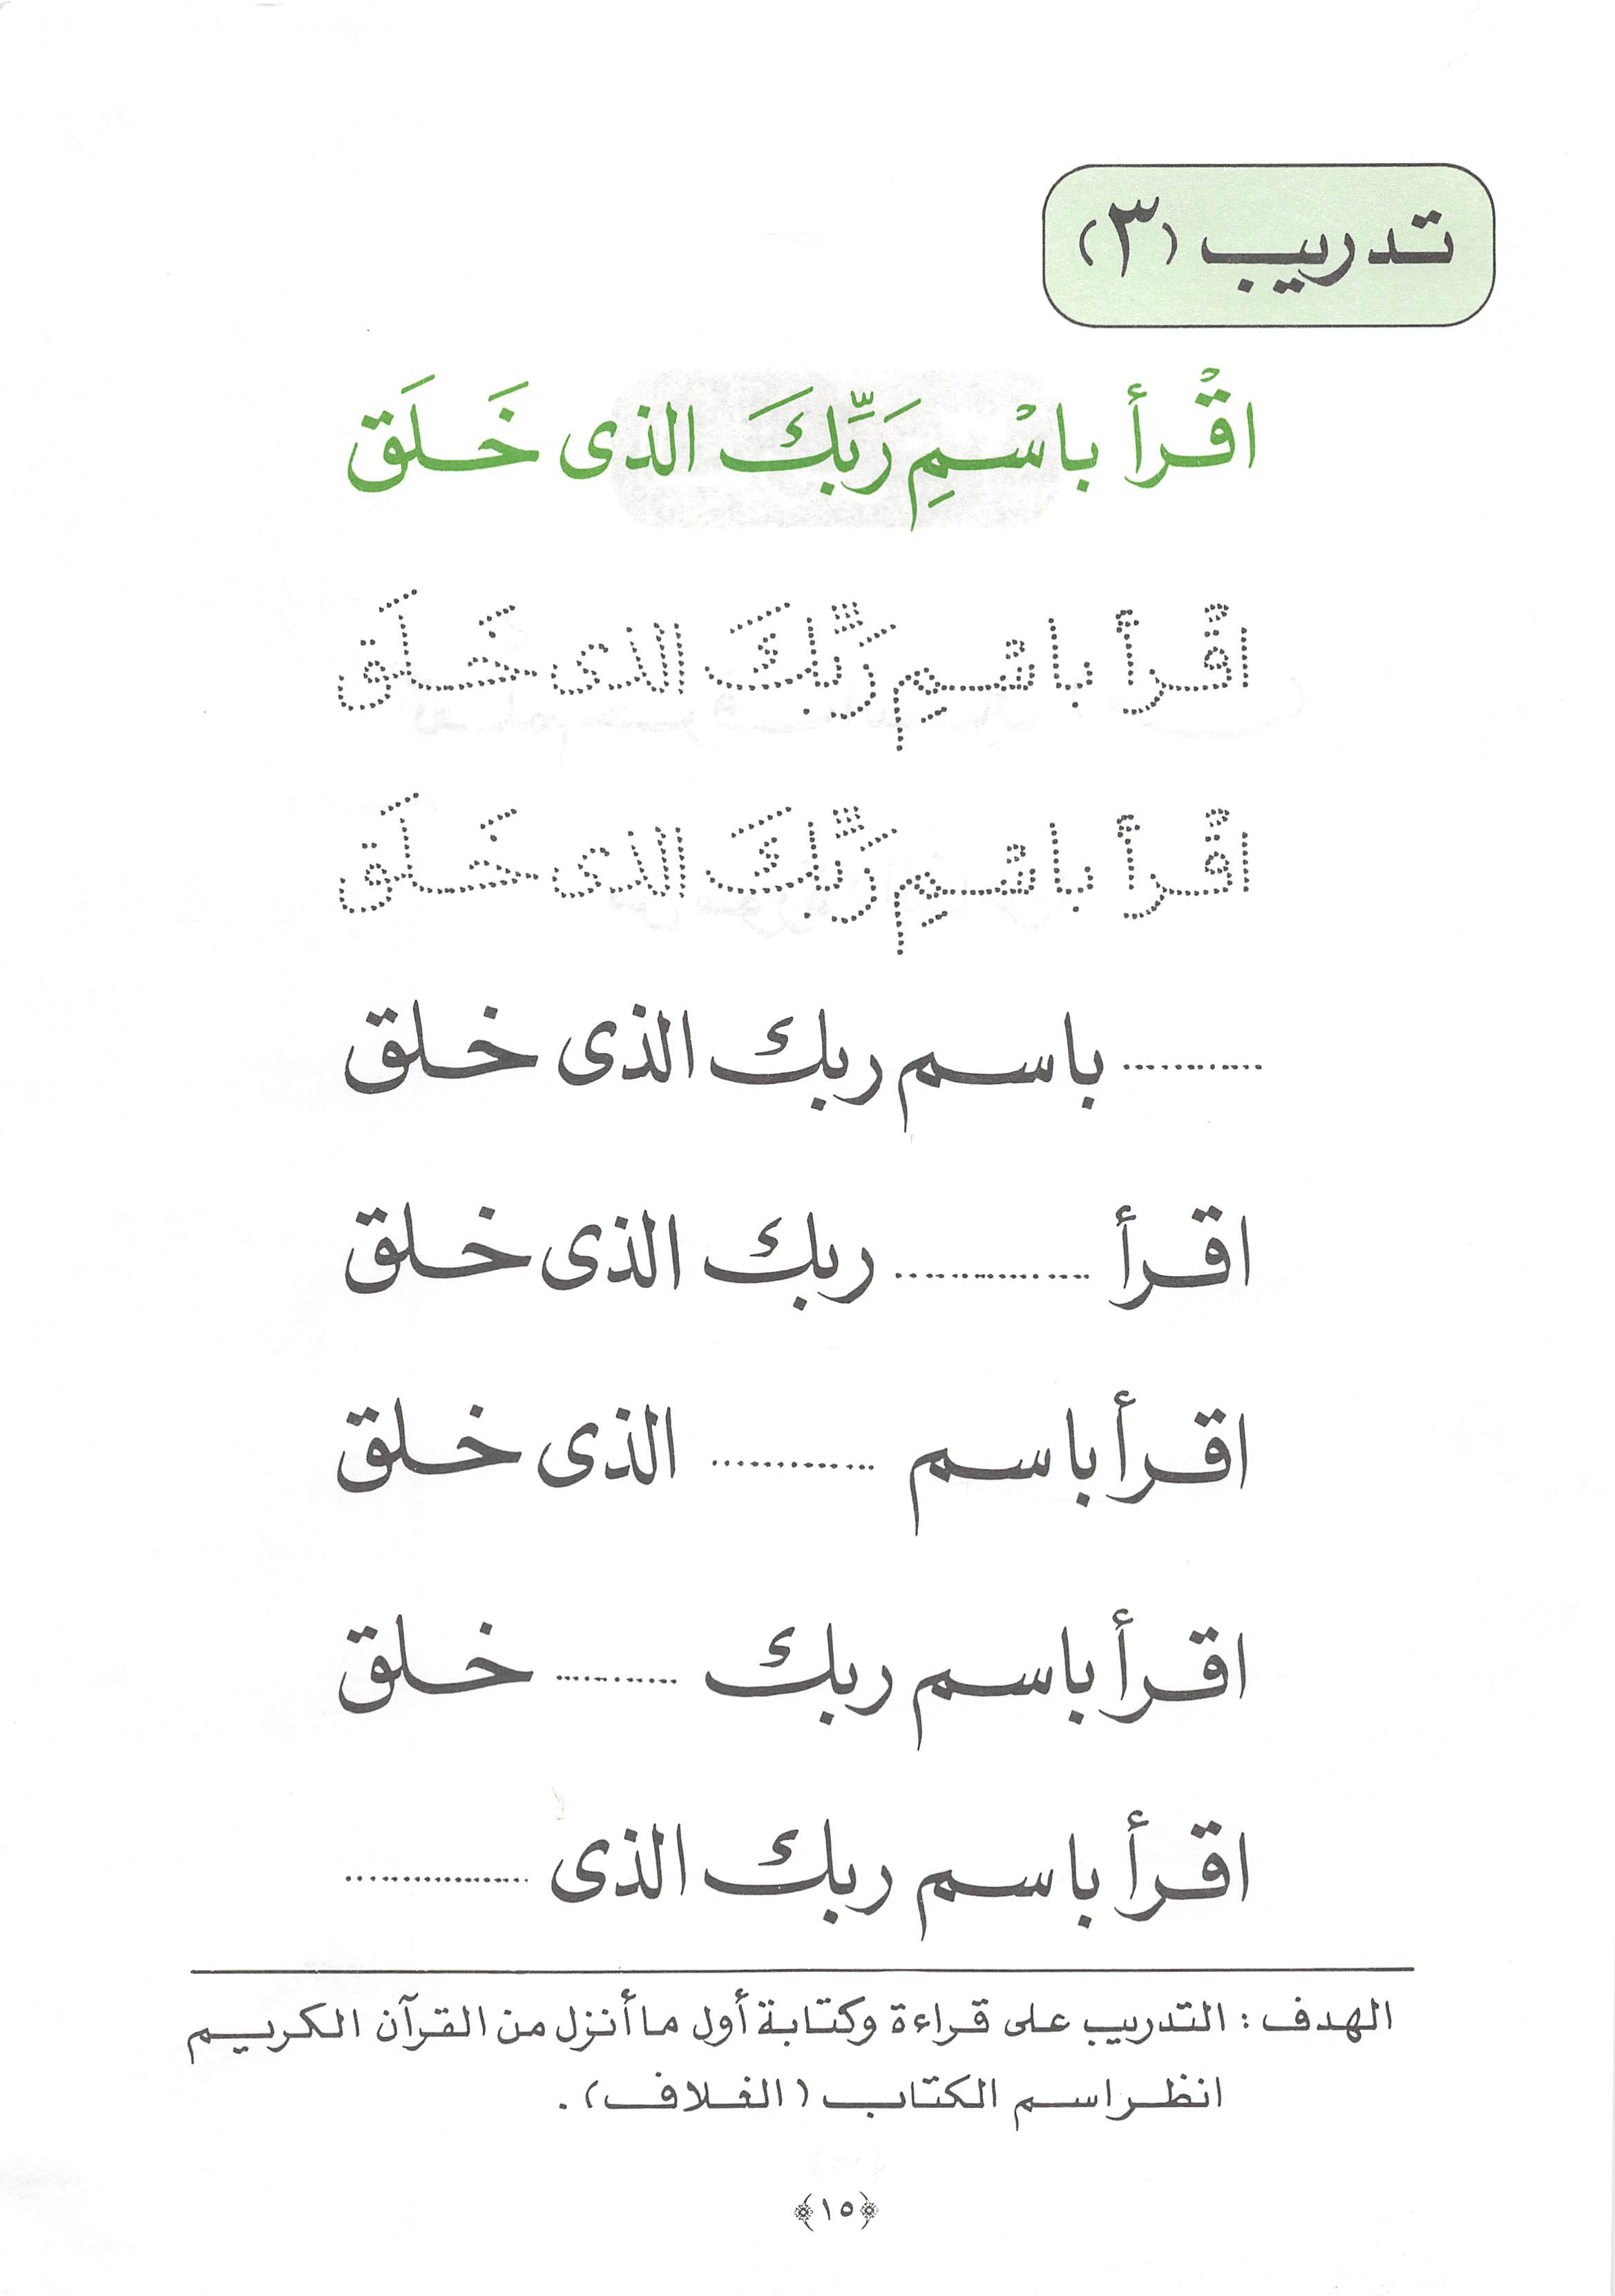 تدريب (٣)
اقْرأ باسْمِ رَبِّكَ الذى خَلَق
اقْرأ باسْمِ رَبِّكَ الذى خَلَق
اقْرأ باسْمِ رَبِّكَ الذى خَلَق
............ باسم ربك الذى خلق
اقرأ ................ ربك الذى خلق
اقرأ باسم ............. الذى خلق
اقرأ باسم ربك ........... خلق
اقرأ باسم ربك الذى ................
الهدف : التدريب على قراءة وكتابة أول ما أنزل من القرآن الكريم
انظر اسم الكتاب (الغلاف) .
﴿١٥﴾